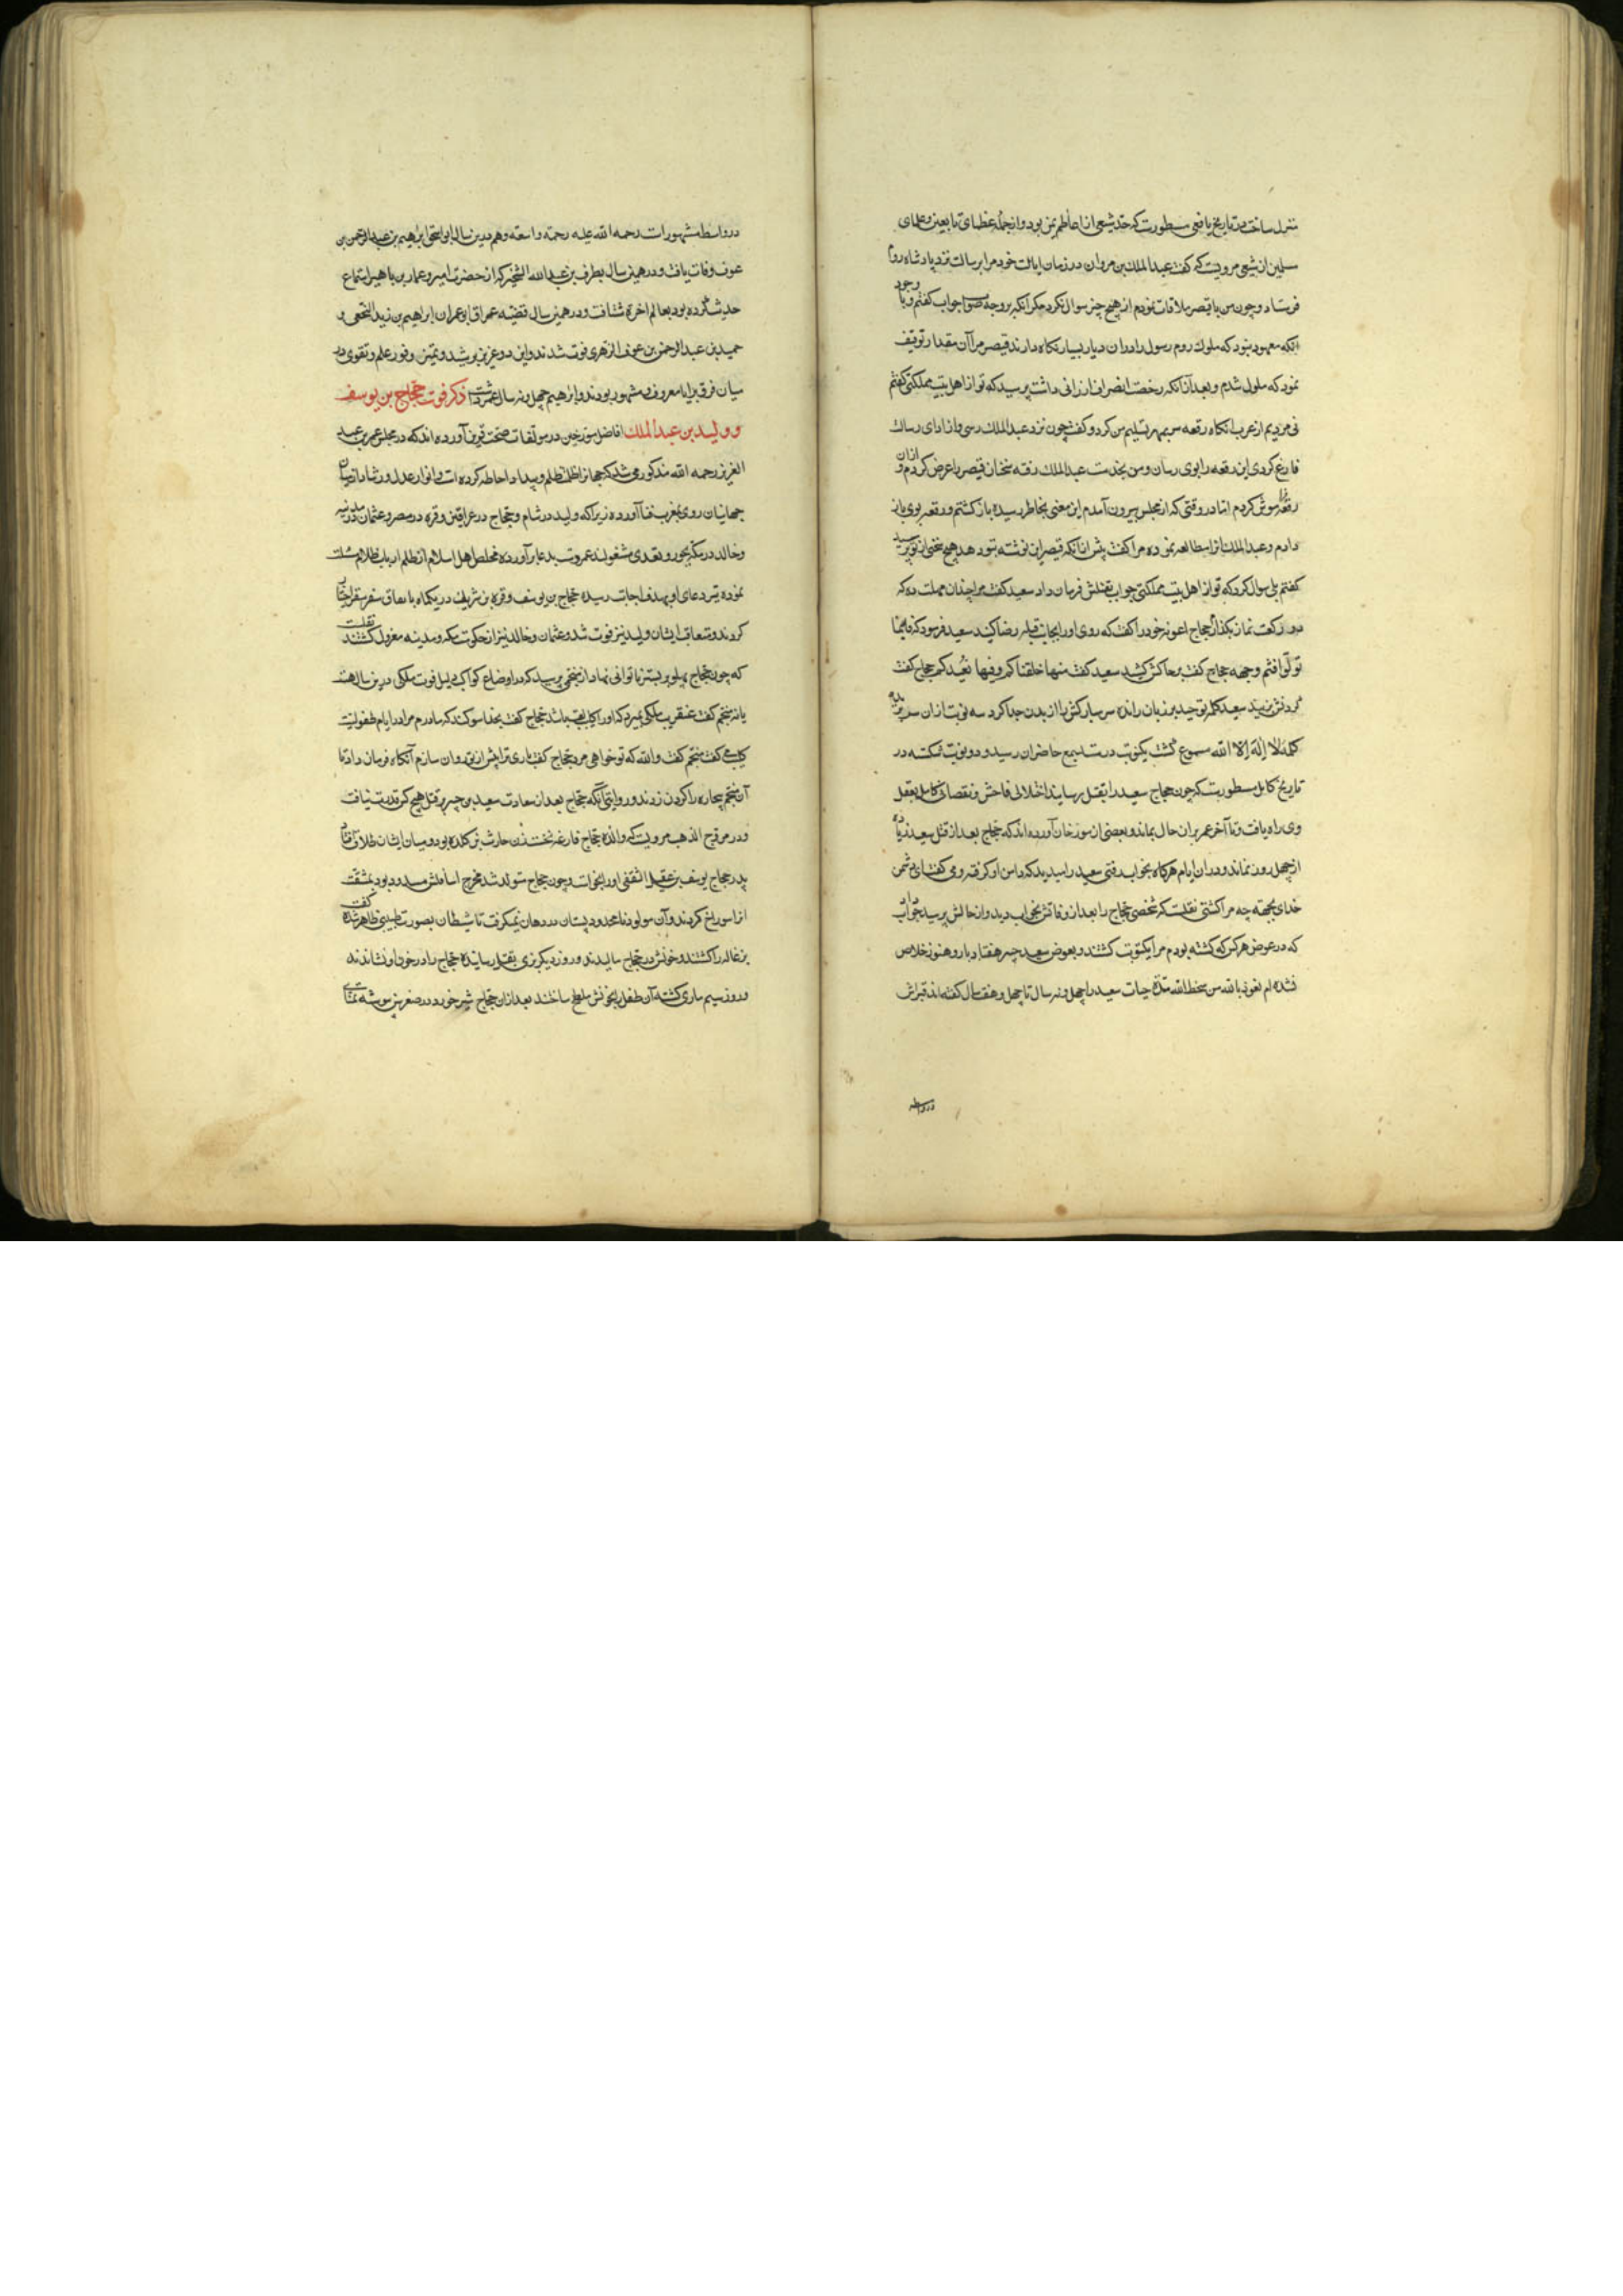 منزل ساخت در تاریخ یافعی مسطورست که جد شعبی از اعاظم یمن بود و از جمله عظمای تابعین و علمای
مسلمین از شعبی مرویست که گفت عبد الملك بن مروان در زمان ایالت خود مرا برسالت نزد پادشاه روم
فرستاد و چون من با قیصر ملاقات نمودم از هیچ چیز سوال نکرد مکر آنکه بر وجه صواب جواب کفتم و با وجود
آنکه معهود نبود که ملوك روم رسول را در ان دیار بسیار نکاه دارند قیصر مرا آن مقدار توقیف
نمود که ملول شدم و بعد از آنکه رخصت انصراف ارزانی داشت پرسید که تو از اهل بیت مملکتی کفتم
نی مردیم از عرب آنکاه رقعه سر بمهر تسلیم من کرد و کفت چون نزد عبد الملك رسی و از ادای رسالت
فارغ کردی این رقعه را بوی رسان و من بخدمت عبد الملك رفته سخنان قیصر را عرض کردم و از آن
رقعه فراموش کردم اما در وقتی که از مجلس بیرون آمدم این معنی بخاطر رسیده باز کشتم و رقعه بوی باز
دادم و عبد الملك انرا مطالعه نموده مرا کفت پیش از آنکه قیصر این نوشته بتو دهد هیچ سخنی از تو پرسید
کفتم بلی سوال کرد که تو از اهل بیت مملکتی جواب بقتلش فرمان داد سعید کفت مرا چندان مهلت ده که
دو رکعت نماز بکذارم حجاج اعونه خود را کفت که روی او را بجانب قبله رضا کنید سعید فرمود که فاینما
تولوا فثم وجهه حجاج کفت برخاکش کشید سعید کفت منها خلقناکم و فیها نعیدکم حجاج کفت
کردنش بزنید سعید کلمه توحید بر زبان رانده سر مبارکش را از بدن جدا کرد سه نوبت از ان سر بریده
کلمه لا اله الا الله مسموع کشت یکنوبت درست بسمع حاضران رسید و دو نوبت شکسته در
تاریخ کامل مسطورست که چون حجاج سعید را بقتل رسانید اختلالی فاحش و نقصانی کامل بعقل
وی راه یافت و تا آخر عمر بران حال بماند و بعضی از مورخان آورده اند که حجاج بعد از قتل سعید زیاده
از چهل روز نماند و در ان ایام هرکاه بخواب رفتی سعید را میدید که دامن او کرفته و می کفت ای دشمن
خدای بجهته چه مرا کشتی نقلست که شخصی حجاج را بعد از وفاتش بخواب دید و از حالش پرسید جواب
که در عوض هر کس که کشته بودم مرا یکنوبت کشتند و بعوض سعید جبیر هفتاد بار و هنوز خلاص
نشده ام نعوذ بالله من سخط الله مدة حیات سعید را چهل و نه سال تا چهل و هفت سال کفته اند قبراش
در واسط
در واسط مشهورات رحمه الله علیه رحمة واسعة و هم درین سال ابو اسحق ابراهیم بن عبد الرحمن بن
عوف وفات یافت و در همین سال مطرف بن عبد الله الشخیر که از حضرت امیر و عمار بن یاسر استماع
حدیث کرده بود بعالم اخرة شتافت و در همین سال فقیه عراق ابو عمران ابراهیم بن زید النخعی و
حمید بن عبد الرحمن بن عوف الزهری فوت شدند و این دو عزیز برشد و تمیز و وفور علم و تقوی در
میان فرق برایا معروف و مشهور بودند و ابراهیم چهل و نه سال عمر داشت ذکر فوت حجاج بن یوسف
و ولید بن عبد الملك افاضل مورخین در مولفات صحت قرین آورده اند که در مجلس عمر بن عبد
العزیز رحمه الله مذکور می شد که جهان را ظلمت ظلم و بیداد احاطه کرده است و انوار عدل و رشاد از میان
جهانیان روی بمغرب فنا آورده زیرا که ولید در شام و حجاج در عراقین و قره در مصر و عثمان در مدینه
و خالد در مکه بجور و تعدی مشغولند عمر دست بدعا برآورده مخلص اهل اسلام از ظلم ارباب ظلام مسئلت
نموده تیر دعای او بهدف اجابت رسیده حجاج بن یوسف و قره بن شریك در یکماه باتفاق سفر سقر اختیار
کردند و متعاقب ایشان ولید نیز فوت شد و عثمان و خالد نیز از حکومت مکه و مدینه معزول کشتند نقلست
که چون حجاج پهلو بر بستر ناتوانی نهاد از منجمی پرسید که در اوضاع کواکب دلیل فوت ملکی درین سال هست
یا نه منجم کفت عنقریب ملکی بمیرد که او را کلیب لقب باشد حجاج کفت بخدا سوکند که مادرم مرا در ایام طفولیت
کلیب می کفت منجم کفت والله که تو خواهی مرد حجاج کفت باری ترا پیش از خود روان سازم آنکاه فرمان داد تا
آن منجم بیچاره را کردن زدند و روایتی آنکه حجاج بعد از سعادت سعید بن جبیر بر قتل هیچ کس قدرت نیافت
و در مروج الذهب مرویست که والده حجاج فارغه نخست زن حارث بن کلده بود و میان ایشان طلاق افتاد
پدر حجاج یوسف بن عقیل الثقفی او را بخواست و چون حجاج متولد شد مخرج اسافلش مسدود بود بمشقت
انرا سوراخ کردند و آن مولود نامحدود پستان در دهان نمیکرفت تا شیطان بصورت طبیبی ظاهر شده کفت
بزغاله را کشتند و خونش در حجاج مالیدند و روز دیکر بزی بقتل رسانیده حجاج را در خون او نشاندند
و روز سیم ماری کشته آن طفل را بخونش ملطخ ساختند بعد از ان حجاج شیر خورد و در صغر سن